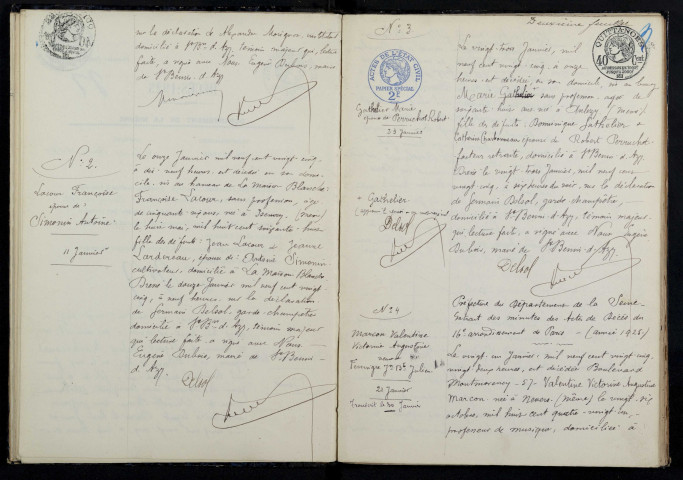 sur la déclaration de Alexandre
domicilié à St Bn d'Azy, témoin majeur, qui, lecture
faite, a signé avec Nous Eugène Dubois, maire
de St Benin-d'Azy.
No 2.
Lacour Françoise
épouse de
Simonin Antoine
11 Janvier
Le onze Janvier mil neuf cent vingt cinq,
à dix neuf heures, est décédée en son domi-
cile, sis au hameau de La Maison Blanche
Françoise Lacour, sans profession, âgée
de cinquante six ans, née à (Nièvre)
le huit mai, mil huit cent soixante-huit
fille des de funts Jean Lacour et Jeanne
Lardereau, épouse de Antoine Simonin
cultivateur, domicilié à La Maison Blanche
Dressé le douze Janvier mil neuf cent vingt
cinq, à neuf heures, sur la déclaration
de Germain Delsol, garde-champêtre
domicilié à St Bn-d'Azy, témoin majeur
qui lecture faite a signé avec Nous
Eugène Dubois, maire de St Benin-
d'Azy.
Delsol
Deuxième feuillet
ACTES DE L'ÉTAT CIVIL
PAPIER SPÉCIAL
2F
QUITTANCES
40
No 3
Gatholier Marie
épouse de Perruchot Robert
23 Janvier
+ Gatholier
Delsol
Le vingt-trois Janvier, mil
neuf cent vingt cinq, à onze
heures est décédée, en son domicile, sis au bourg
Marie Gatholier sans profession, âgée de
soixante huit ans née à (Nièvre)
fille des de funts Dominique Gatholier
Catherine épouse de Robert Perruchot
facteur retraité, domicilié à St Benin d'Azy.
Dressé le vingt-trois Janvier, mil neuf cent
vingt cinq, à dix heures du soir, sur la déclaration
de Germain Delsol, garde champêtre,
domicilié à St Benin-d'Azy, témoin majeur
qui lecture faite, a signé avec Nous Eugène
Dubois, maire de St Benin-d'Azy.
Delsol
No 4
Marcon Valentine
Victorine Augustine
21 Janvier
Transcrit le Janvier
Préfecture du Département de la Seine
Extrait des minutes des Actes de Décès du
16e arrondissement de Paris - (année 1925)
Le vingt, un Janvier, mil neuf cent vingt cinq,
vingt deux heures, est décédée Boulevard
Montmorency - 57 - Valentine Victorine Augustine
Marcon née à Nevers (Nièvre) le vingt-six
octobre, mil huit cent quatre-vingt un,
professeur de musique, domiciliée à